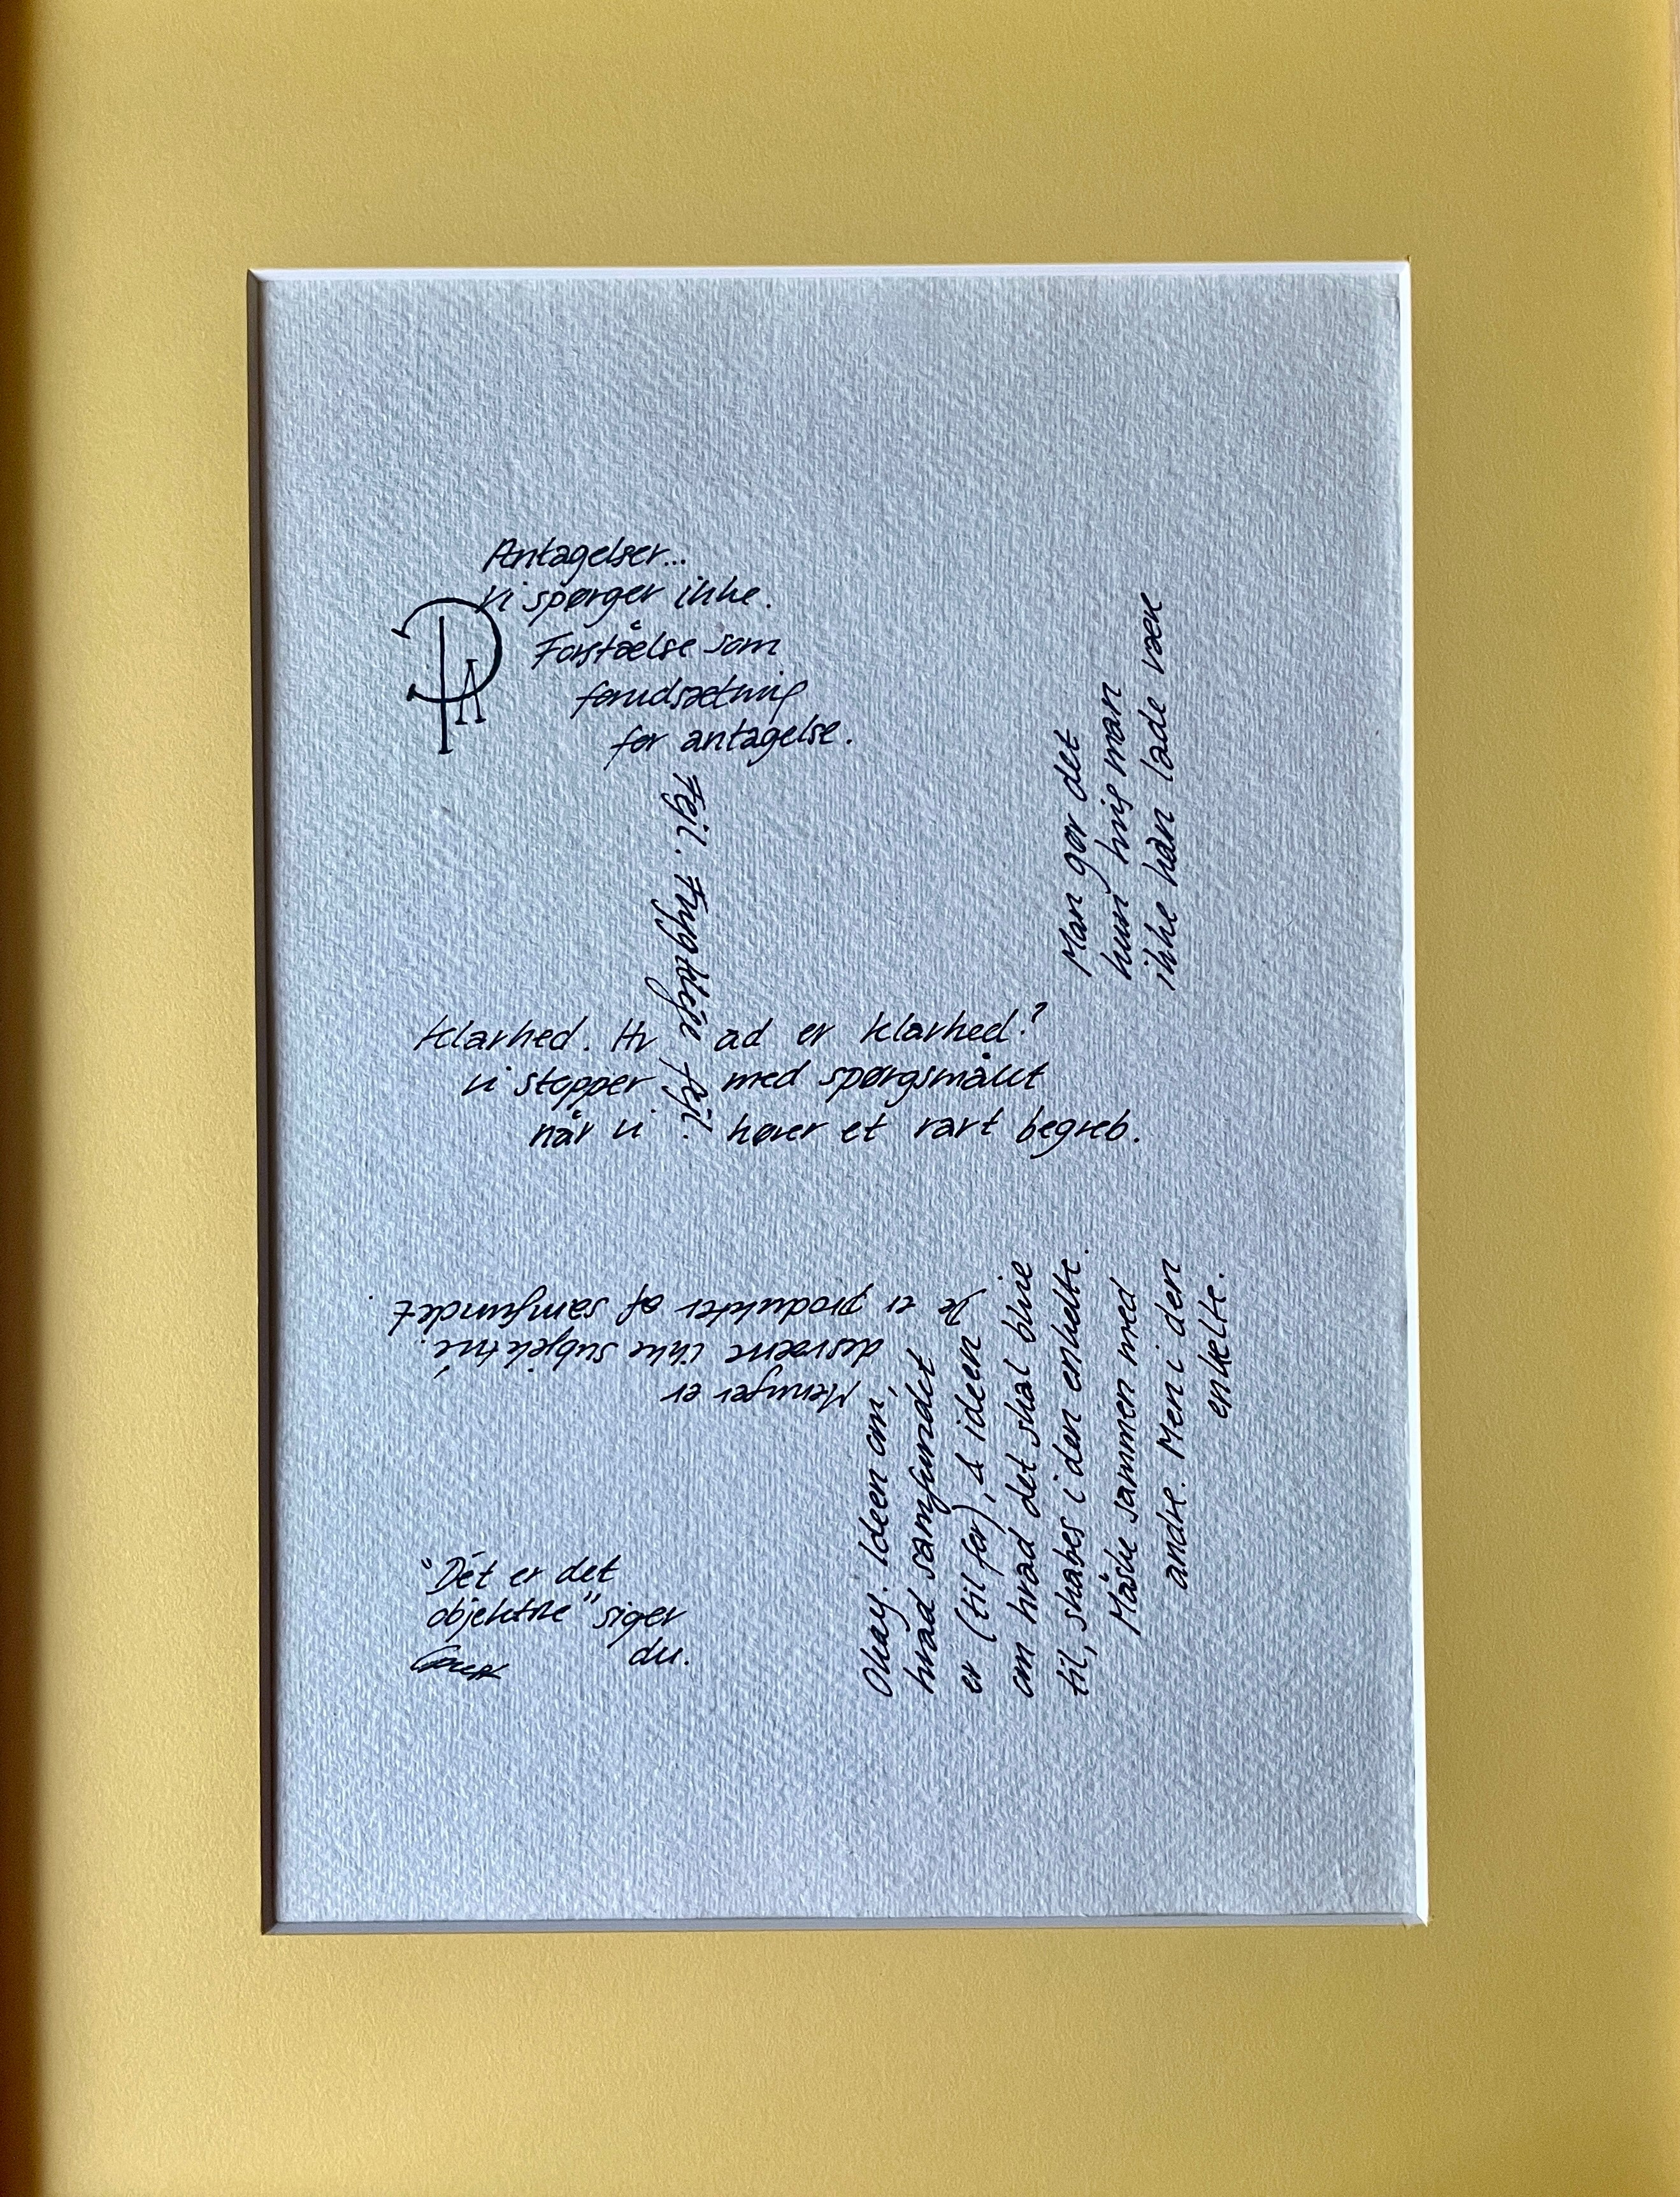 Antagelser...
vi spørger ikke.
Forståelse som
forudsætning
for antagelse.
Fejl. Frygtelige fejl.
Man gør det
kun hvis man
ikke kan lade være
Klarhed. Hvad er klarhed?
vi stopper med spørgsmålet
når vi hører et rart begreb.
Meninger er
desværre ikke subjektive.
De er produkter af samfundet.
Okay. Ideen om,
hvad samfundet
er (til for), & ideen
om hvad det skal blive
til, skabes i den enkelte.
Måske sammen med
andre. Men i den
enkelte.
"Dét er det
objektive" siger
du.